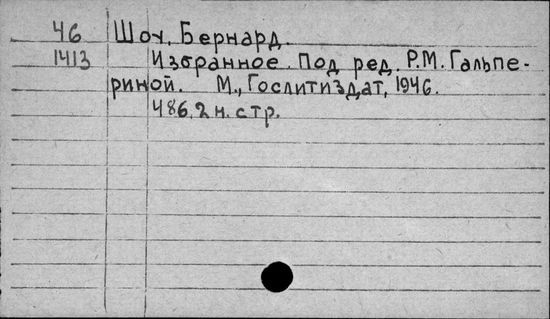 46 Шоу, Бернард.
1413 Избранное. Под ред. Р.М. Гальпе-
риной. М., Гослитиздат, 1946.
486, 2 н. стр.